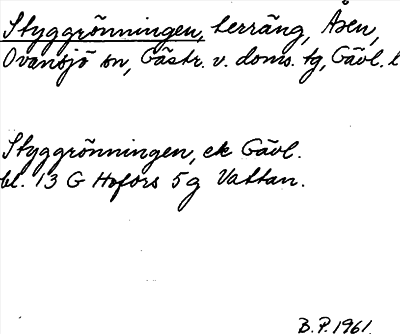 Styggrönningen, terräng, Åsen,
Ovansjö sn, Gästr. v. doms. tg, Gävl. l
Styggrönningen, ek Gävl.
bl. 13 G Hofors 5g Vattan.
B.P. 1961.